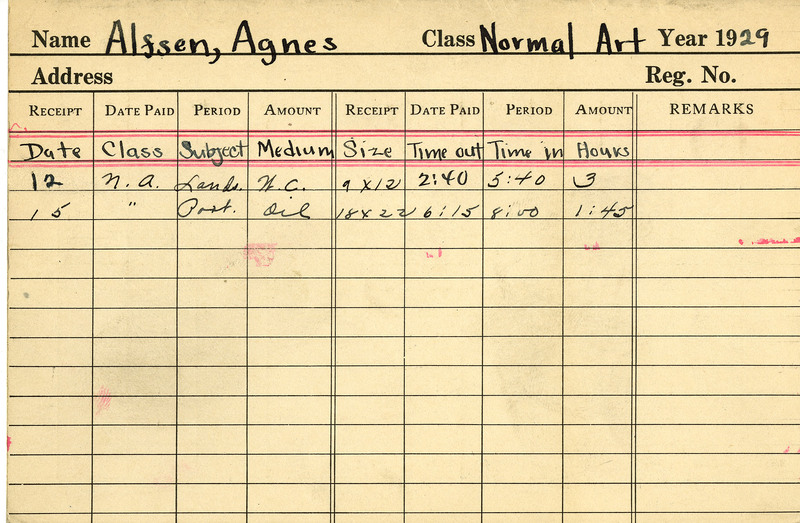 Name Alfsen, Agnes Class Normal Art Year 1929
Address Reg. No.
RECEIPT DATE PAID PERIOD AMOUNT RECEIPT DATE PAID PERIOD AMOUNT REMARKS
Date Class Subject Medium Size Time out Time in Hours
12 N. A. Lands. W. C. 9 X 12 2:40 5:40 3
15 " Port. Oil 18 X 22 6:15 8:00 1:45